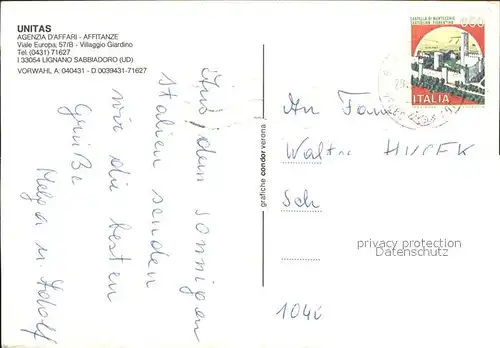 UNITAS
AGENZIA D'AFFARI - AFFITANZE
Viale Europa, 57/B - Villaggio Giardino
Tel: (0431) 71627
I 33054 LIGNANO SABBIADORO (UD)
VORWAHL A: 040431 - D 0039431-71627
Aus dem sonnigen
Italien senden
wir die besten
Grüße
Helga u. Adolf
grafiche condor verona
CASTELLO DI MONTECCHIO
CASTIGLION FIORENTINO
ITALIA
An Fam
Walter HUCEK
Sch
privacy protection
Datenschutz
1040